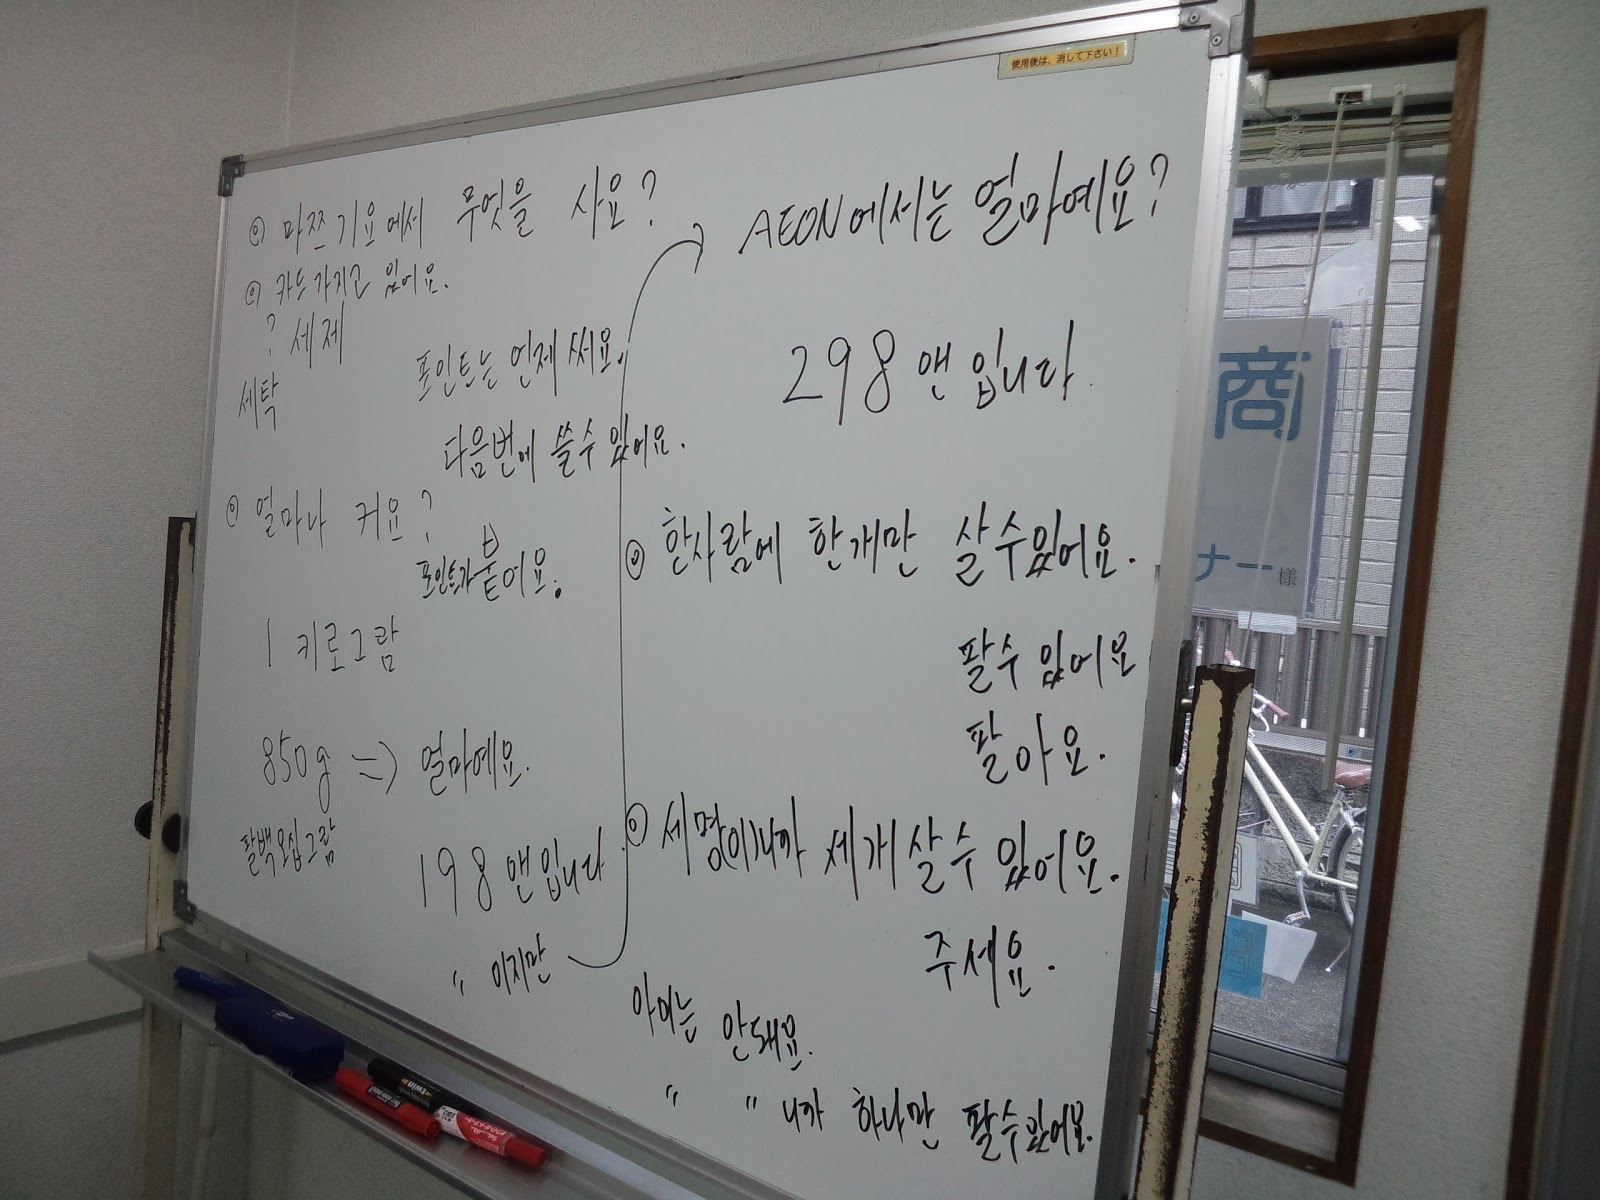 使用後は、消して下さい!
◎ 마쯔기요에서 무엇을 사요?
◎ 카드가지고 있어요.
? 세제
세탁
포인트는 언제 써요.
다음번에 쓸수있어요.
◎ 얼마나 커요?
포인트가 붙어요.
1 키로그람
850g => 얼마예요.
팔백오십그람
198앤입니다
〃 이지만
AEON에서는 얼마예요?
298앤입니다.
◎ 한사람에 한개만 살수있어요.
팔수있어요
팔아요.
◎ 세명(이)니까 세개살수있어요.
주세요.
아이는 안돼요.
〃 〃 니까 하나만 팔수있어요.
商
ナー様